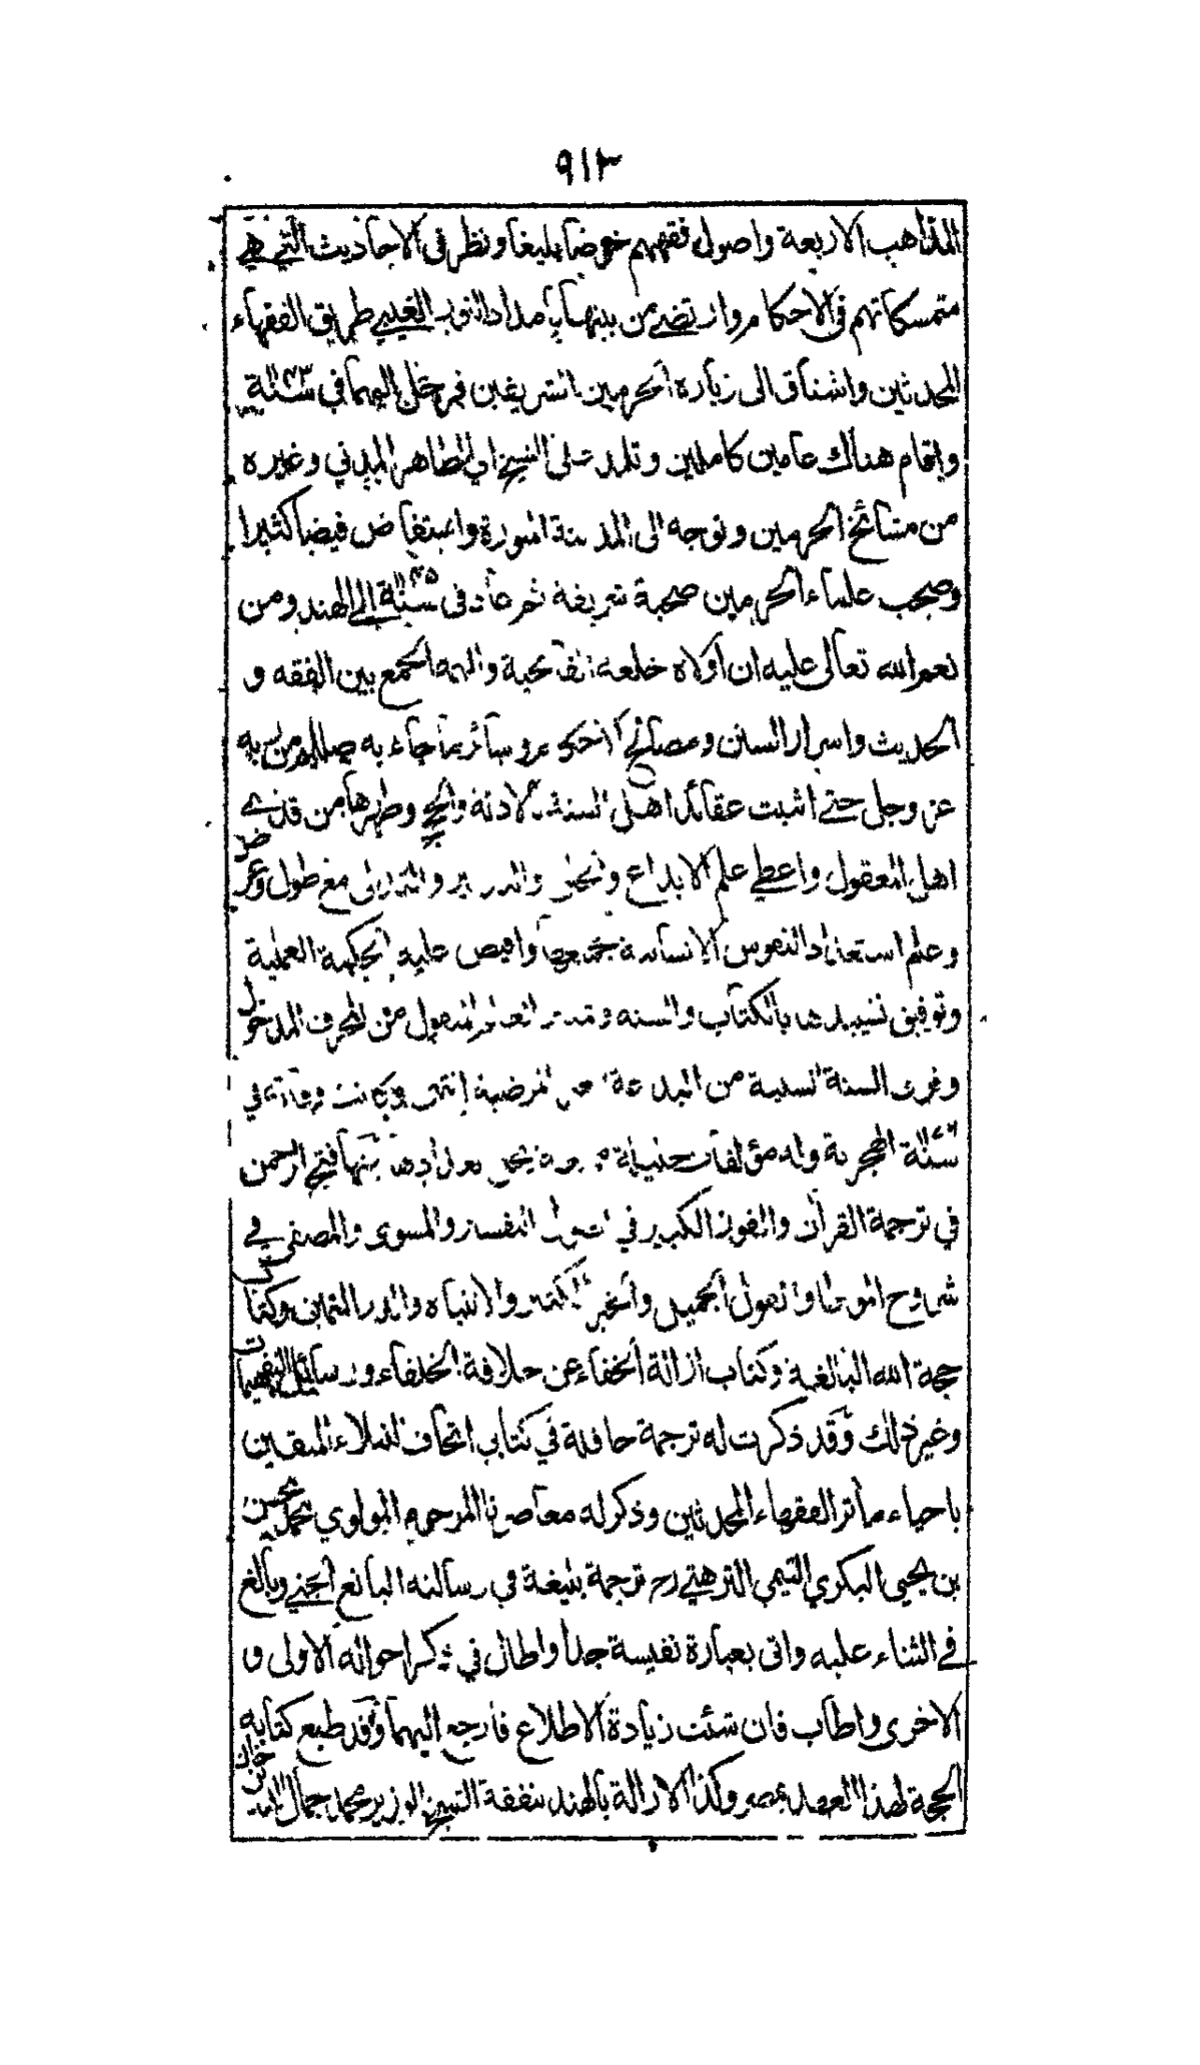 ٩١٢
المذاهب الاربعة واصول فقههم خوضا بليغا ونظر في الاحاديث التي هي
متمسكاتهم في الاحكام وارتضى من بينها بامداد النور الغيبي طريق الفقهاء
المحدثين واشتاق الى زيارة الحرمين الشريفين فرحل اليهما في سنة ١١٤٣
واقام هناك عامين كاملين وتلمذ على الشيخ ابي الطاهر المدني وغيره
من مشائخ الحرمين وتوجه الى المدينة المنورة واستفاض فيضا كثيرا
وصحب علماء الحرمين صحبة شريفة ثم عاد في سنة ١١٤٥ الى الهند ومن
نعم الله تعالى عليه ان اولاه خلعة الفاتحية والهمه الجمع بين الفقه و
الحديث واسرار السنن ومصالح الاحكام وسائر ما جاء به صللم من ربه
عز وجل حتى اثبت عقائد اهل السنة بالادلة والحجج وطهرها من قذى
اهل المعقول واعطي علم الابداع والخلق والتدبير والتدلي مع طول وعرض
وعلم استعداد النفوس الانسانية لجميعها وافيض عليه الحكمة العملية
وتوفيق تشييدها بالكتاب والسنة وتمييز العلم المنقول من المحرف المدخول
وفرق السنة السنية من البدعة الغير المرضية انتهى وكانت وفاته في
سنة ١١٧٦ الهجرية وله مؤلفات جليلة منها فتح الرحمن
في ترجمة القرآن والفوز الكبير في اصول التفسير والمسوى والمصفى في
شروح الموطا والقول الجميل والخير الكثير والانتباه والدر الثمين وكتاب
حجة الله البالغة وكتاب ازالة الخفاء عن خلافة الخلفاء ورسائل التفهيمات
وغير ذلك وقد ذكرت له ترجمة حافلة في كتابي اتحاف النبلاء المتقين
باحياء مآثر الفقهاء المحدثين وذكر له معاصرنا المرحوم المولوي محمد محسن
بن يحيى البكري التيمي الترهتي رح ترجمة بليغة في رسالته اليانع الجني وبالغ
في الثناء عليه واتى بعبارة نفيسة جدا واطال في ذكر احواله الاولى و
الاخرى واطاب فان شئت زيادة الاطلاع فارجع اليهما وقد طبع كتابه
الحجة لهذا العهد بمصر وكذا الازالة بالهند بنفقة الشيخ الوزير محمد جمال الدين خان